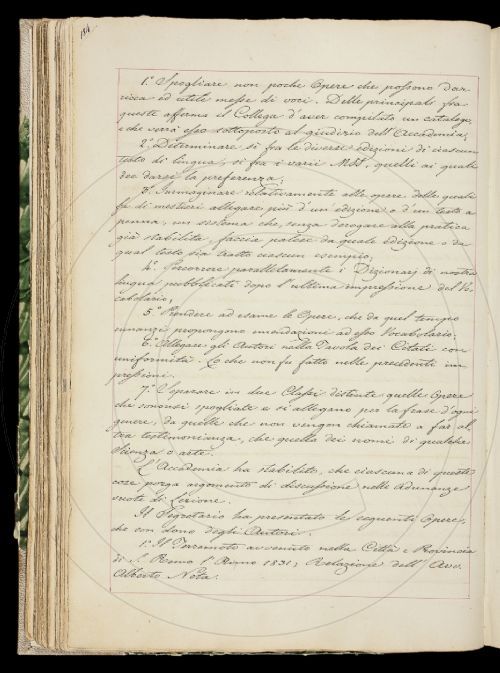 184
1.° Spogliare non poche Opere che possono dar
ricca ed utile messe di voci. Delle principali fra
queste afferma il Collega d'aver compilato un catalogo,
e che verrà esso sottoposto al giudizio dell'Accademia;
2.° Determinare sì fra le diverse edizioni di ciascun
testo di lingua, sì fra i varii MSS. quelli ai quali
dee darsi la preferenza;
3.° Immaginare relativamente alle opere delle quali
fa di mestieri allegare più d'un'edizione o d'un testo a
penna, un sistema che, senza derogare alla pratica
già stabilita, faccia palese da quale edizione o da
qual testo sia tratto ciascun esempio;
4.° Percorrere parallelamente i Dizionarj di nostra
lingua pubblicati dopo l'ultima impressione del Vo-
cabolario;
5.° Prendere ad esame le Opere, che da quel tempo
innanzi propongono emendazioni ad esso Vocabolario.
6.° Allegare gli Autori nella Tavola dei Citati con
uniformità. Lo che non fu fatto nelle precedenti im-
pressioni.
7.° Separare in due Classi distinte quelle Opere
che sonosi spogliate e si allegano per la frase d'ogni
genere, da quelle che non vengon chiamate a far al-
tra testimonianza, che quella dei nomi di qualche
scienza o arte.
L'Accademia ha stabilito, che ciascuna di queste
cose porga argomento di discussione nelle Adunanze
vuote di Lezione.
Il Segretario ha presentato le seguenti Opere,
che son dono degli Autori.
1.° Il Terremoto avvenuto nella Città e Provincia
di S. Remo l'Anno 1831; Relazione dell'Avv.
Alberto Nota.